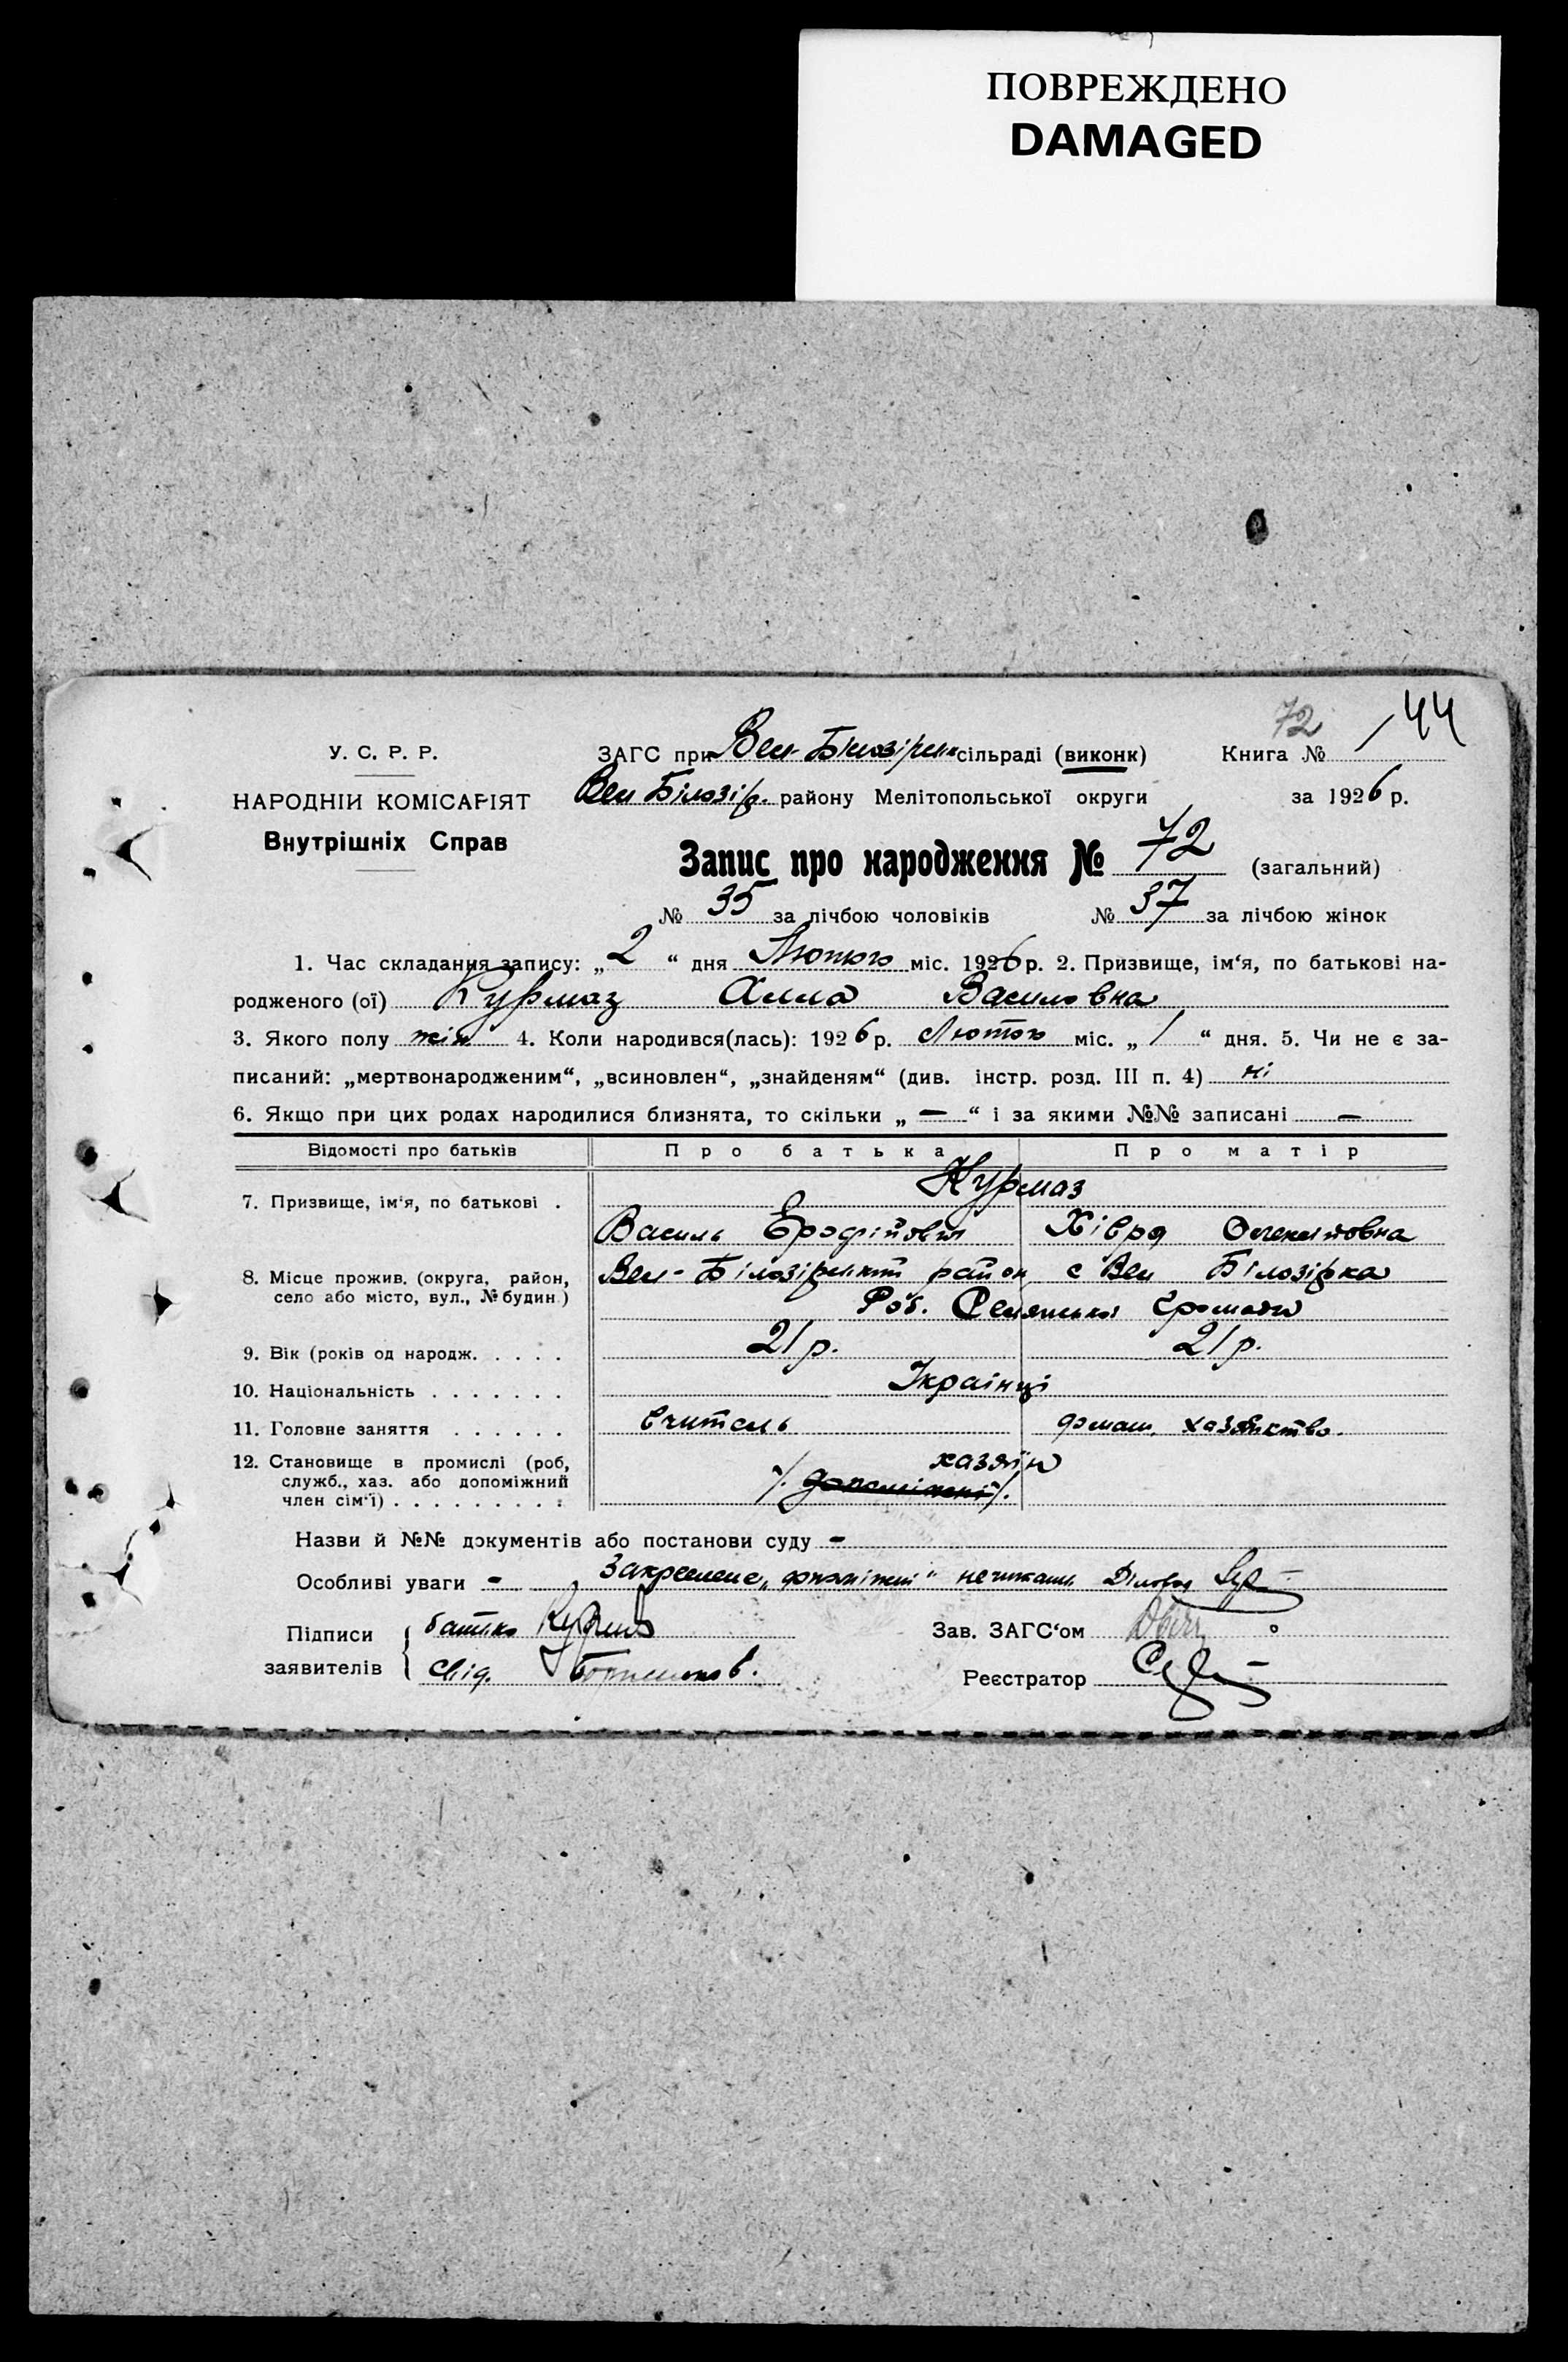 ПОВРЕЖДЕНО
DAMAGED
72 44
У. С. Р. Р.
ЗАГС при Вел-Білозірськ сільраді (виконк) Книга № 1
НАРОДНІЙ КОМІСАРІЯТ
Вел Білозір. району Мелітопольської округи за 1926 р.
Внутрішніх Справ
Запис про народження № 72 (загальний)
№ 35 за лічбою чоловіків № 37 за лічбою жінок
1. Час складання запису: „2“ дня Лютого міс. 1926 р. 2. Призвище, ім‘я, по батькові на-
родженого (ої) Курмаз Алла Василовна
3. Якого полу жін 4. Коли народився(лась): 1926 р. Лютого міс. „1“ дня. 5. Чи не є за-
писаний: „мертвонародженим“, „всиновлен“, „знайденям“ (див. інстр. розд. III п. 4) ні
6. Якщо при цих родах народилися близнята, то скільки „—“ і за якими №№ записані —
Відомості про батьків Про батька Про матір
Курмаз
7. Призвище, ім‘я, по батькові .
Василь Єрофійович Хівря
8. Місце прожив. (округа, район, село або місто, вул., № будин.)
Вел-Білозірський район с Вел Білозірка
Роб. Селянської Громади
9. Вік (років од народж. . . . . 21 р. 21 р.
10. Національність . . . . . . . Українці
11. Головне заняття . . . . . . вчитель домаш. хазяйство.
12. Становище в промислі (роб, служб., хаз. або допоміжний член сім‘ї) . . . . . . . . .
хазяїн
Назви й №№ документів або постанови суду -
Особливі уваги - Закреслене „допоміжний“ не читати.
Підписи заявителів
батько Курмаз
свід.
Зав. ЗАГС‘ом
Реєстратор